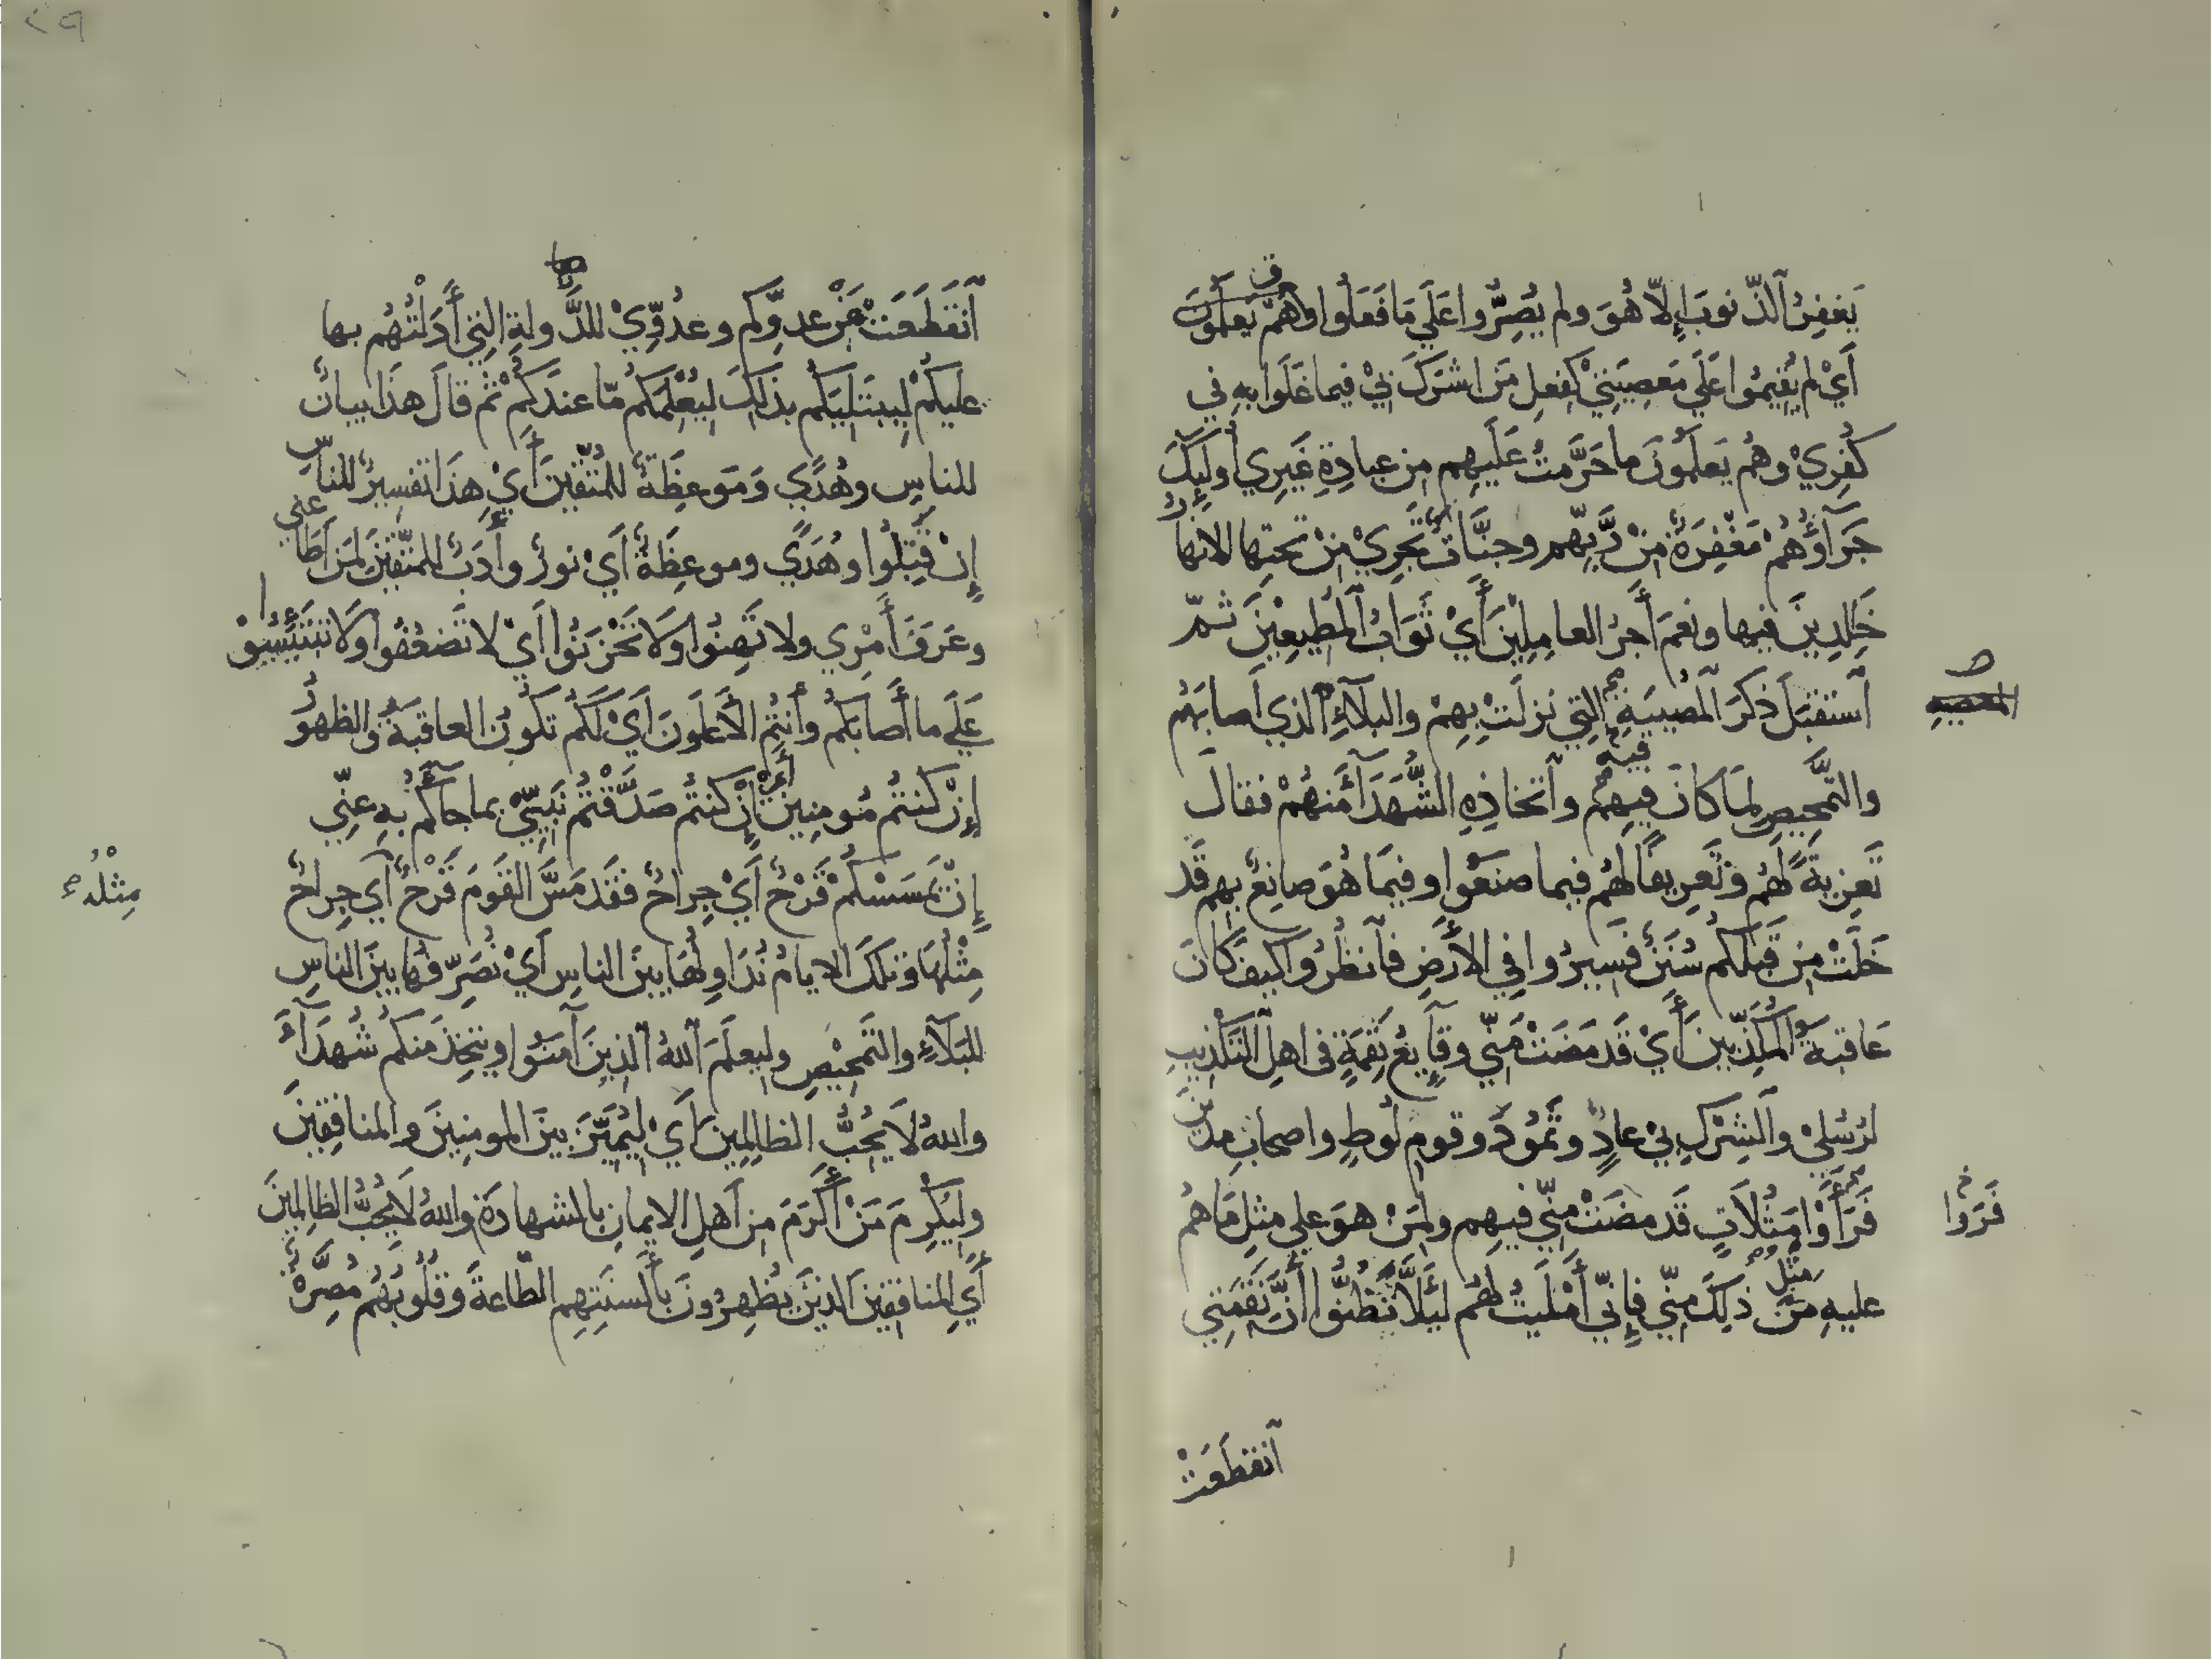 يَغفِرُ ٱلذّنوبَ إلاّ هُوَ ولم يُصِرُّوا عَلَي مَا فَعَلُوا وَهُمْ يَعلَمُونَ
أَيْ لم يُقِيمُوا عَلَي مَعصِيَتِيْ كفِعلِ مَن اشرَكَ بِيْ فيما غَلَوا بهِ في
كُفرِيْ وهُم يَعلَمُونَ ما حَرَّمتُ عَلَيهِم مِن عِبادةِ غَيرِي أوليِكَ
جَزَآؤُهُمْ مَغْفِرَةٌ مِنْ رَّبِّهم وجنَّاتٌ تَجرِيْ مِنْ تحتِها الانهارُ
خَلِدِينَ فيها ونعمَ أَجرُ العامِلِيْنَ أَيْ ثَوَابُ المُطِيعِيْنَ ثمّ
ٱستَقبَلَ ذِكرَ المُصِيبَةِ التِي نزلَتْ بِهِمْ والبلآءِ الذي أَصابَهُم
المصيبه
والتَّمحِيصِ لِمَا كانَ فيهِم وٱتخاذِهِ الشُّهَدَآءَ مِنهُمْ فقالَ
فيه
تَعزِيةً لَهُم وتَعرِيفًا لَهُم فيما صنَعُوا وفيمَا هُوَ صانِعٌ بِهِم قَد
خَلَتْ مِن قَبلِكُم سُنَنٌ فَسِيرُوا فِي الأرضِ فٱنظُرُوا كيفَ كَانَ
عَاقبَةُ المُكَذِّبِينَ أَيْ قَد مَضَتْ مِنّي وقآيعُ نِقمَةٍ في اهلِ التَكذِيبِ
لرُسُلِيْ وٱلشِركِ بِيْ عادٍ وثمُودَ وقومِ لُوطٍ واصحابِ مديَنَ
فَرَأَوْا مَثُلَاتٍ قَد مضَتْ مِنّي فيهِم ولِمَنْ هوَ علي مثلِ مَا هُم
فَرَوا
عليهِ مِن ذلِكَ مِنّي فإنّي أَملَيتُ لهُم ليَلَّا تَظنُّوا أَنَّ نَقمَتِي
مثل
ٱنقطَعَتْ
ٱنقَطَعَتْ عَنْ عدوِّكم وعدُوِّيْ للدَّولةِ التِي أَدَلْتُهُم بها
عليكُمْ لِيبتَلِيَكُم بذلِكَ لِيُعْلِمَكُم مّا عندَكُمْ ثم قالَ هذَا بيانٌ
للناسِ وهُدًي وَمَوعِظَةٌ للمُتّقينَ أَيْ هذَا تفسِيرٌ للناسِ
إن قَبِلُوا وهُدًي وموعِظَةٌ أَيْ نورٌ وأَدَبٌ للمتّقِينَ لمَن أَطاعني
وعَرَفَ أَمْرِي ولا تَهِنُوا ولَا تَحْزنُوا أَيْ لا تَضعُفُوا ولَا تبتَئِسُوْا
عَلَي ما أَصابَكُم وأَنتُم الأَعلَونَ أَيْ لَكُم تكُونُ العاقبَةُ والظهورُ
إنْ كنتُم مُومنِينَ أَيْ إن كنتمُ صَدَّقْتُم نَبيِّيْ بما جآَكُم بهِ عنِّي
إنْ يَمسَسكُمْ قَرْحٌ أَيْ جِراحٌ فقَد مَسَّ القَومَ قَرْحٌ أَي جِراحٌ
مِثْلُهَا وتلكَ الايامُ نُدَاوِلُهَا بينَ الناسِ أَيْ نُصَرِّفُها بينَ الناسِ
مِثْلُه
للبَلآءِ والتَمحِيْصِ ولِيعلَمَ اللهُ الذِينَ آمنُوا ويتخِذَ منكُم شُهدَآءَ
واللهُ لَا يُحِبُّ الظالِمِينَ أَيْ لِيُمَيِّزَ بينَ المومنِينَ والمنافِقِينَ
ولِيُكْرِمَ مَنْ أَكْرَمَ مِن أَهلِ الايمانِ بالشهادَةِ واللهُ لَا يُحِبُّ الظالِمِينَ
أَيِ المنافِقِينَ الذِينَ يُظهِرُونَ بأَلسنَتِهِم الطّاعةَ وَقُلُوبُهُم مُصِرَّةٌ